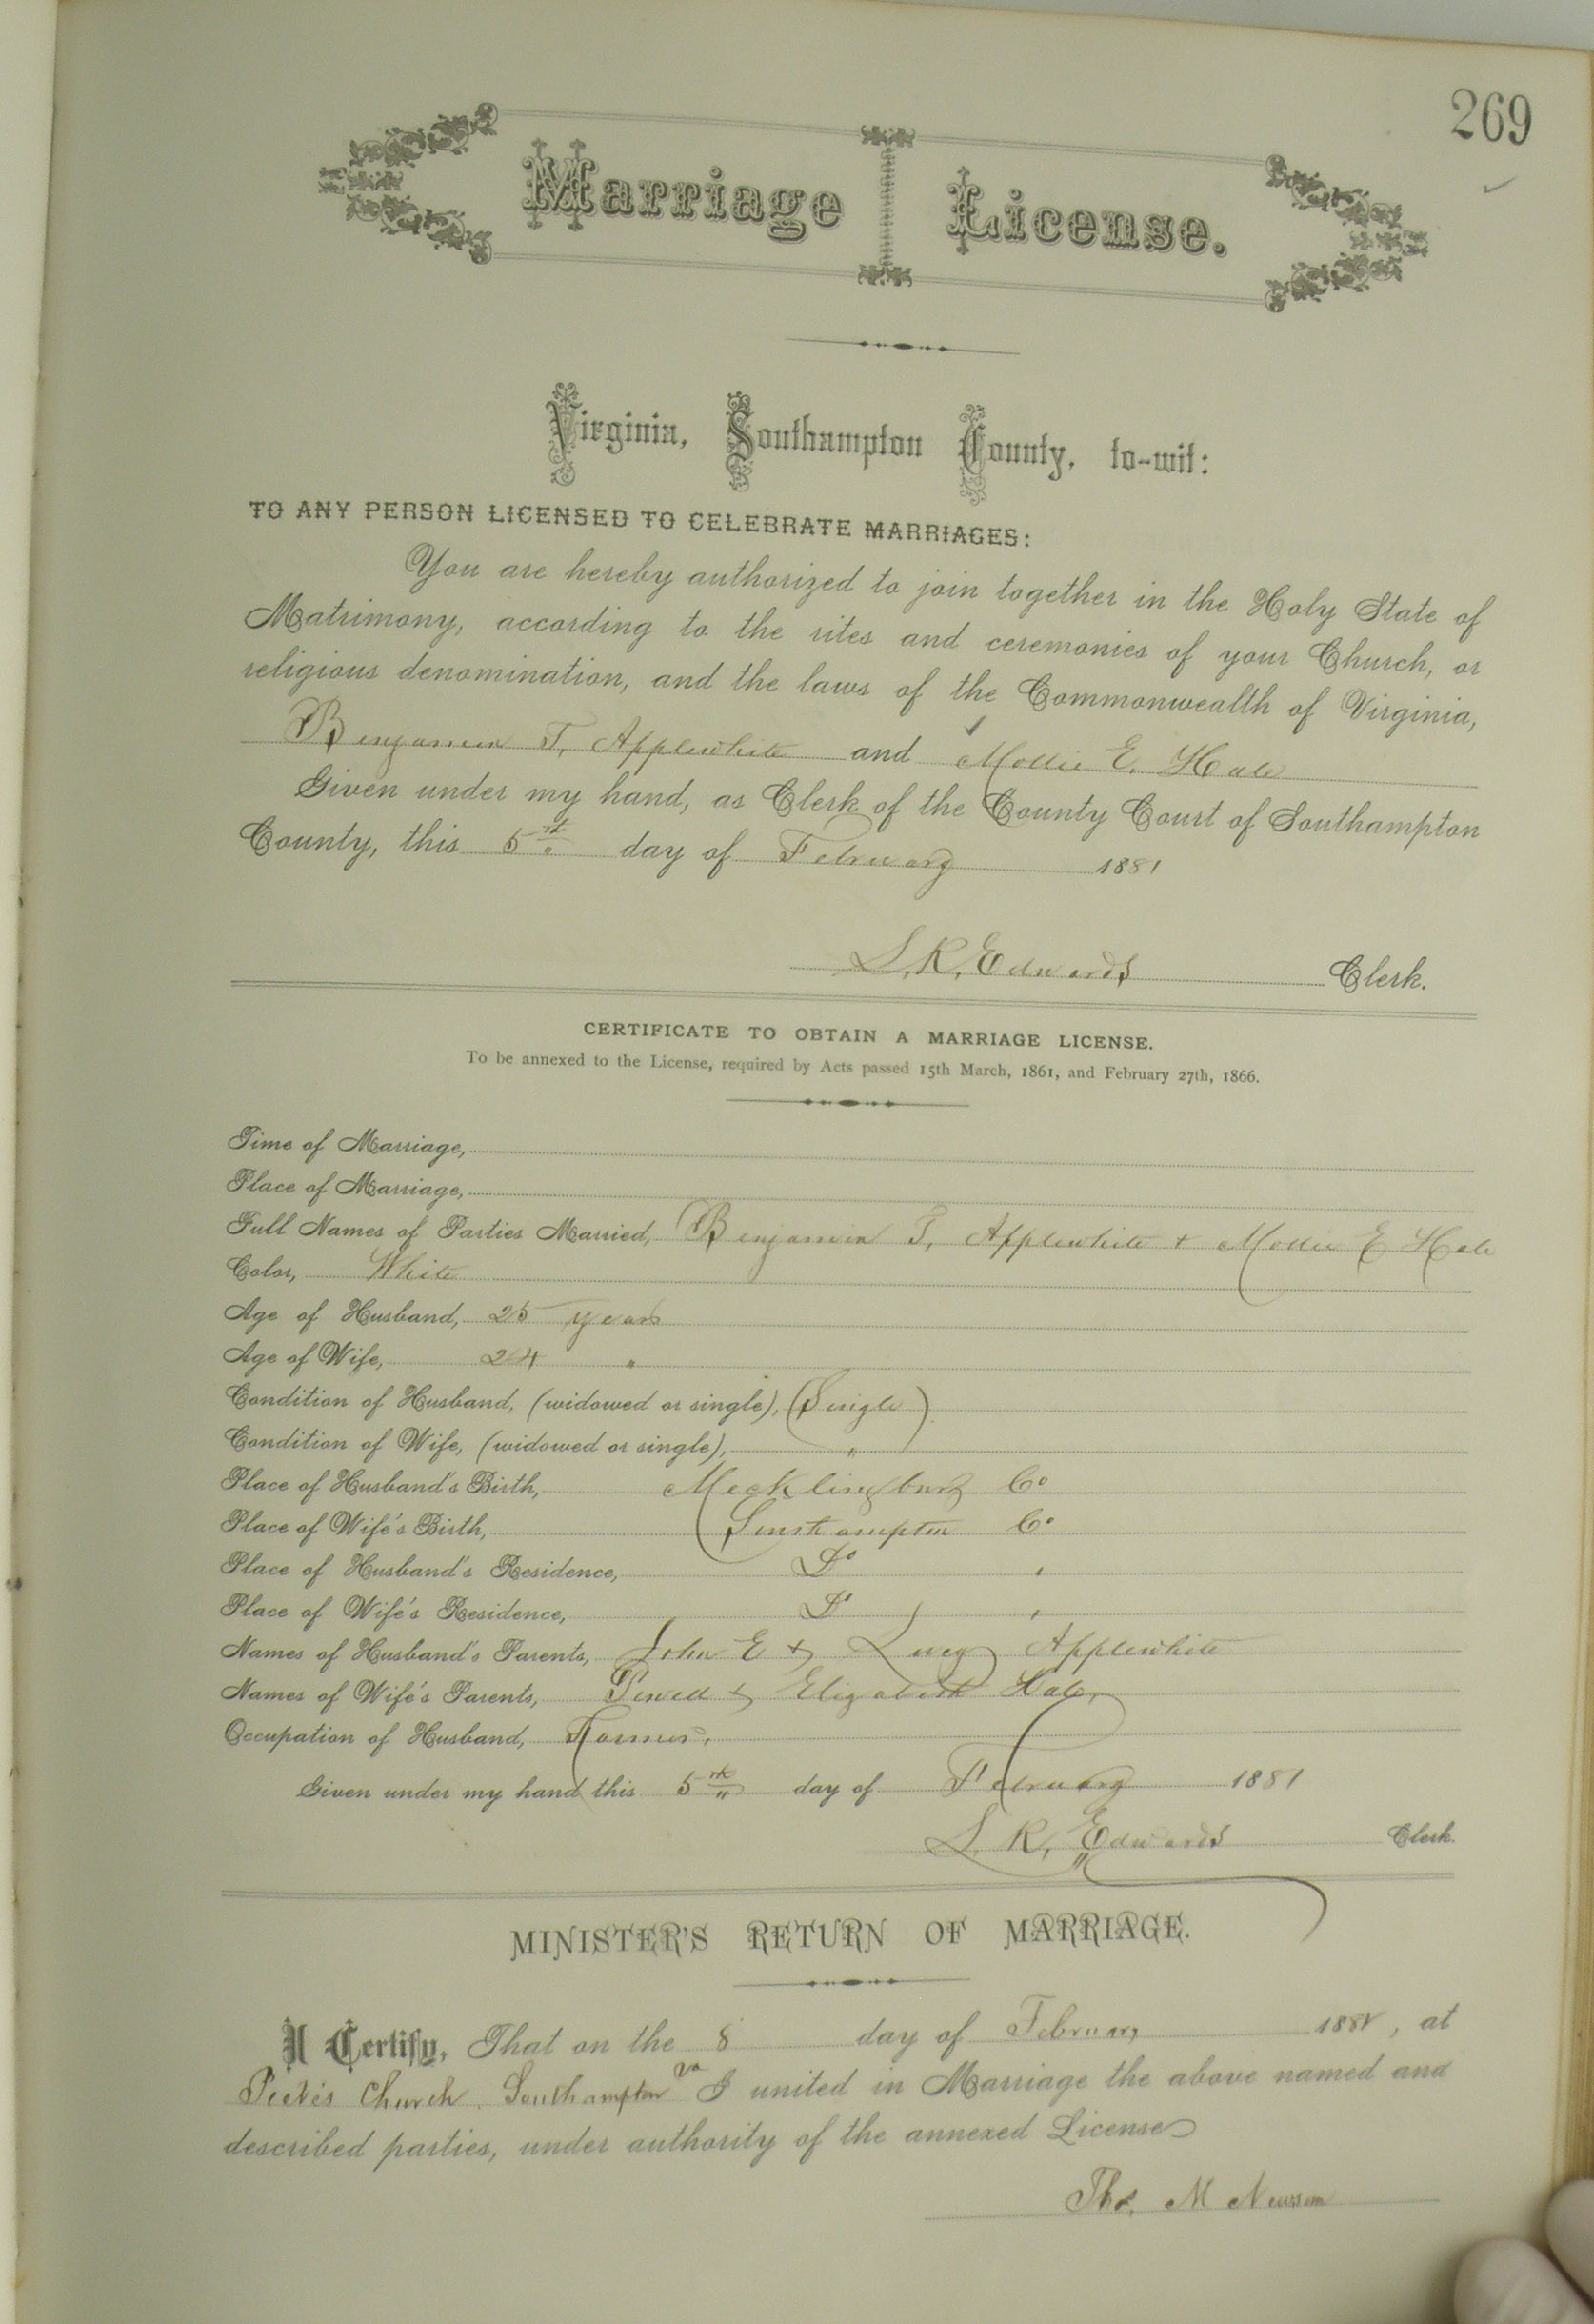 269
Marriage License.
Virginia, Southampton County, to-wit:
TO ANY PERSON LICENSED TO CELEBRATE MARRIAGES:
You are hereby authorized to join together in the Holy State of
Matrimony, according to the rites and ceremonies of your Church, or
religious denomination, and the laws of the Commonwealth of Virginia,
Benjamin T. Applewhite and Mollie E. Hale
Given under my hand, as Clerk of the County Court of Southampton
County, this 5th day of February 1881
L. R. Edwards Clerk.
CERTIFICATE TO OBTAIN A MARRIAGE LICENSE.
To be annexed to the License, required by Acts passed 15th March, 1861, and February 27th, 1866.
Time of Marriage,
Place of Marriage,
Full Names of Parties Married, Benjamin T. Applewhite + Mollie E Hale
Color, White
Age of Husband, 25 years
Age of Wife, 24 "
Condition of Husband, (widowed or single), (Single)
Condition of Wife, (widowed or single), "
Place of Husband's Birth, Mecklingburg Co
Place of Wife's Birth, Southampton Co
Place of Husband's Residence, Do "
Place of Wife's Residence, Do "
Names of Husband's Parents, John E + Lucy Applewhite
Names of Wife's Parents, + Elizabeth Hale
Occupation of Husband, Farmer.
Given under my hand this 5th day of February 1881
L. R. Edwards Clerk.
MINISTER'S RETURN OF MARRIAGE.
I Certify, That on the 8 day of February 1881, at
Church. Southampton Va I united in Marriage the above named and
described parties, under authority of the annexed License
Thos. M Newsom